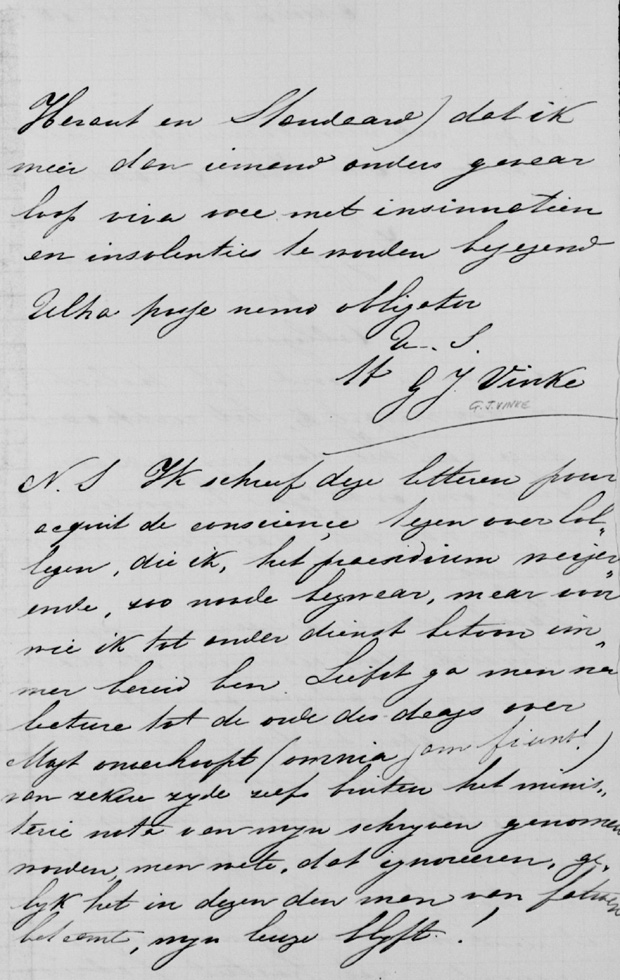 Heraut en Standaard) dat ik
meer dan iemand anders gevaar
loop viva voce met insinuatien
en insolenties te worden bejegend
Ultra posse nemo obligatur
U. S.
G J. Vinke
G. J. VINKE
N. S Ik schreef deze letteren pour
acquit de conscience tegen over Col„
legen, die ik, het praesidium weijer„
ende, zoo noode bezwaar, maar voor
wie ik tot ander dienst betoon im„
mer bereid ben. Liefst ga men na
lecture tot de orde des daags over
Mogt onverhoopt (omnia jam fiunt!)
van zekere zyde zelfs buiten het minis„
terie nota van myn schryven genomen
worden, men wete, dat ignoreeren, ge„
lyk het in dezen den man van fatsoen
betaamt, myn leuze blyft.!